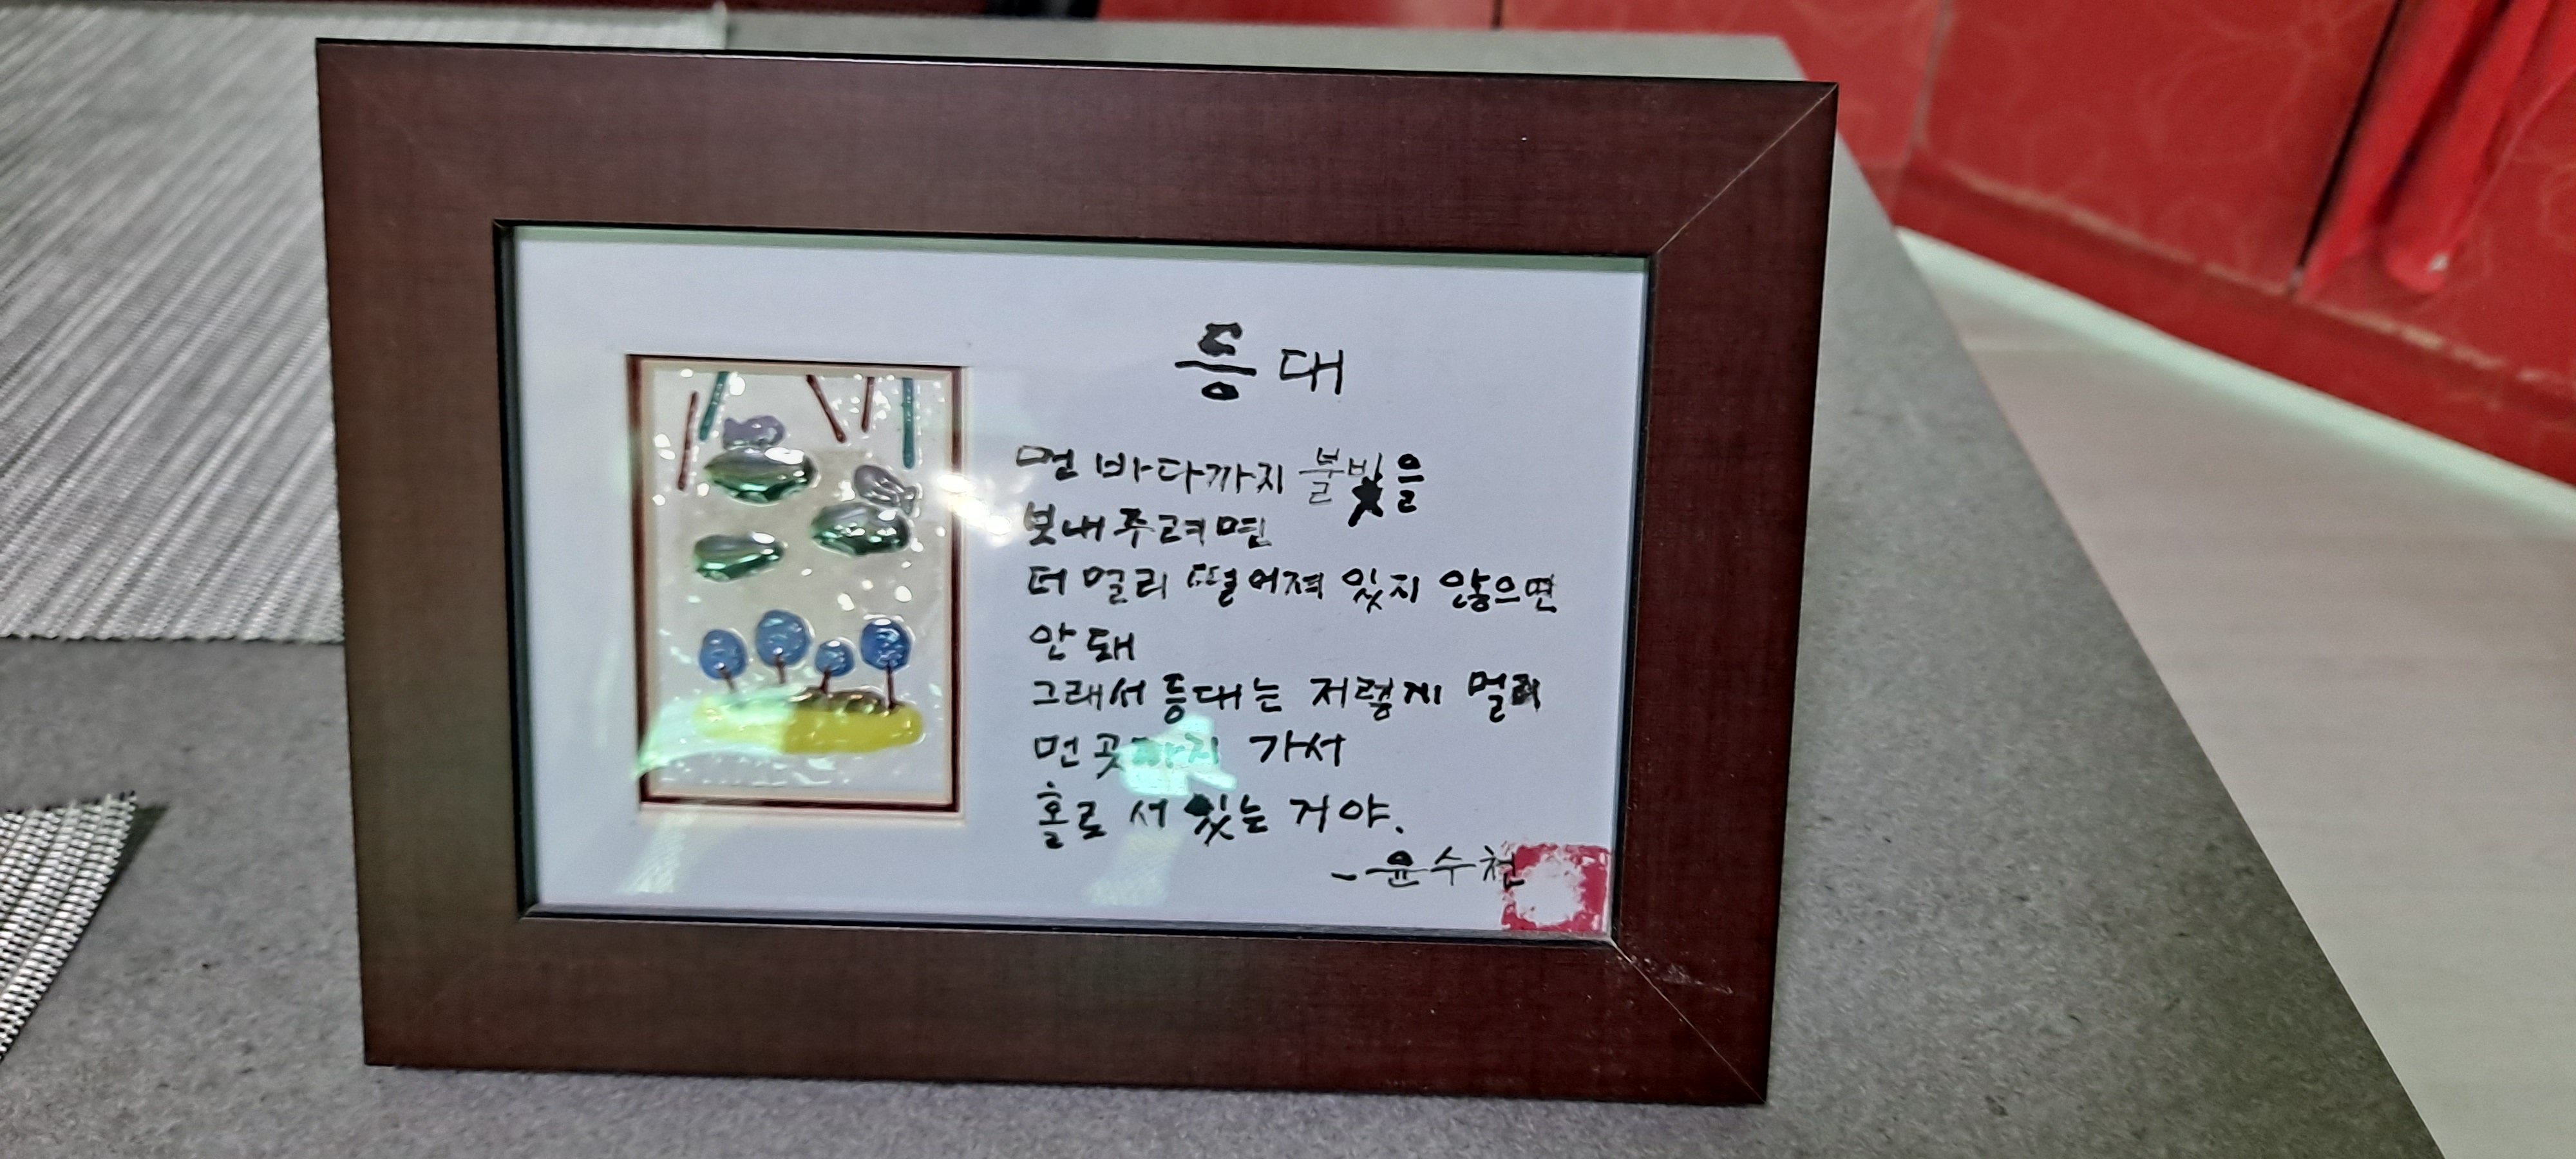 등대
먼 바다까지 불빛을
보내주려면
더 멀리 떨어져 있지 않으면
안돼
그래서 등대는 저렇게 멀리
먼 곳까지 가서
홀로 서 있는 거야.
-윤수천